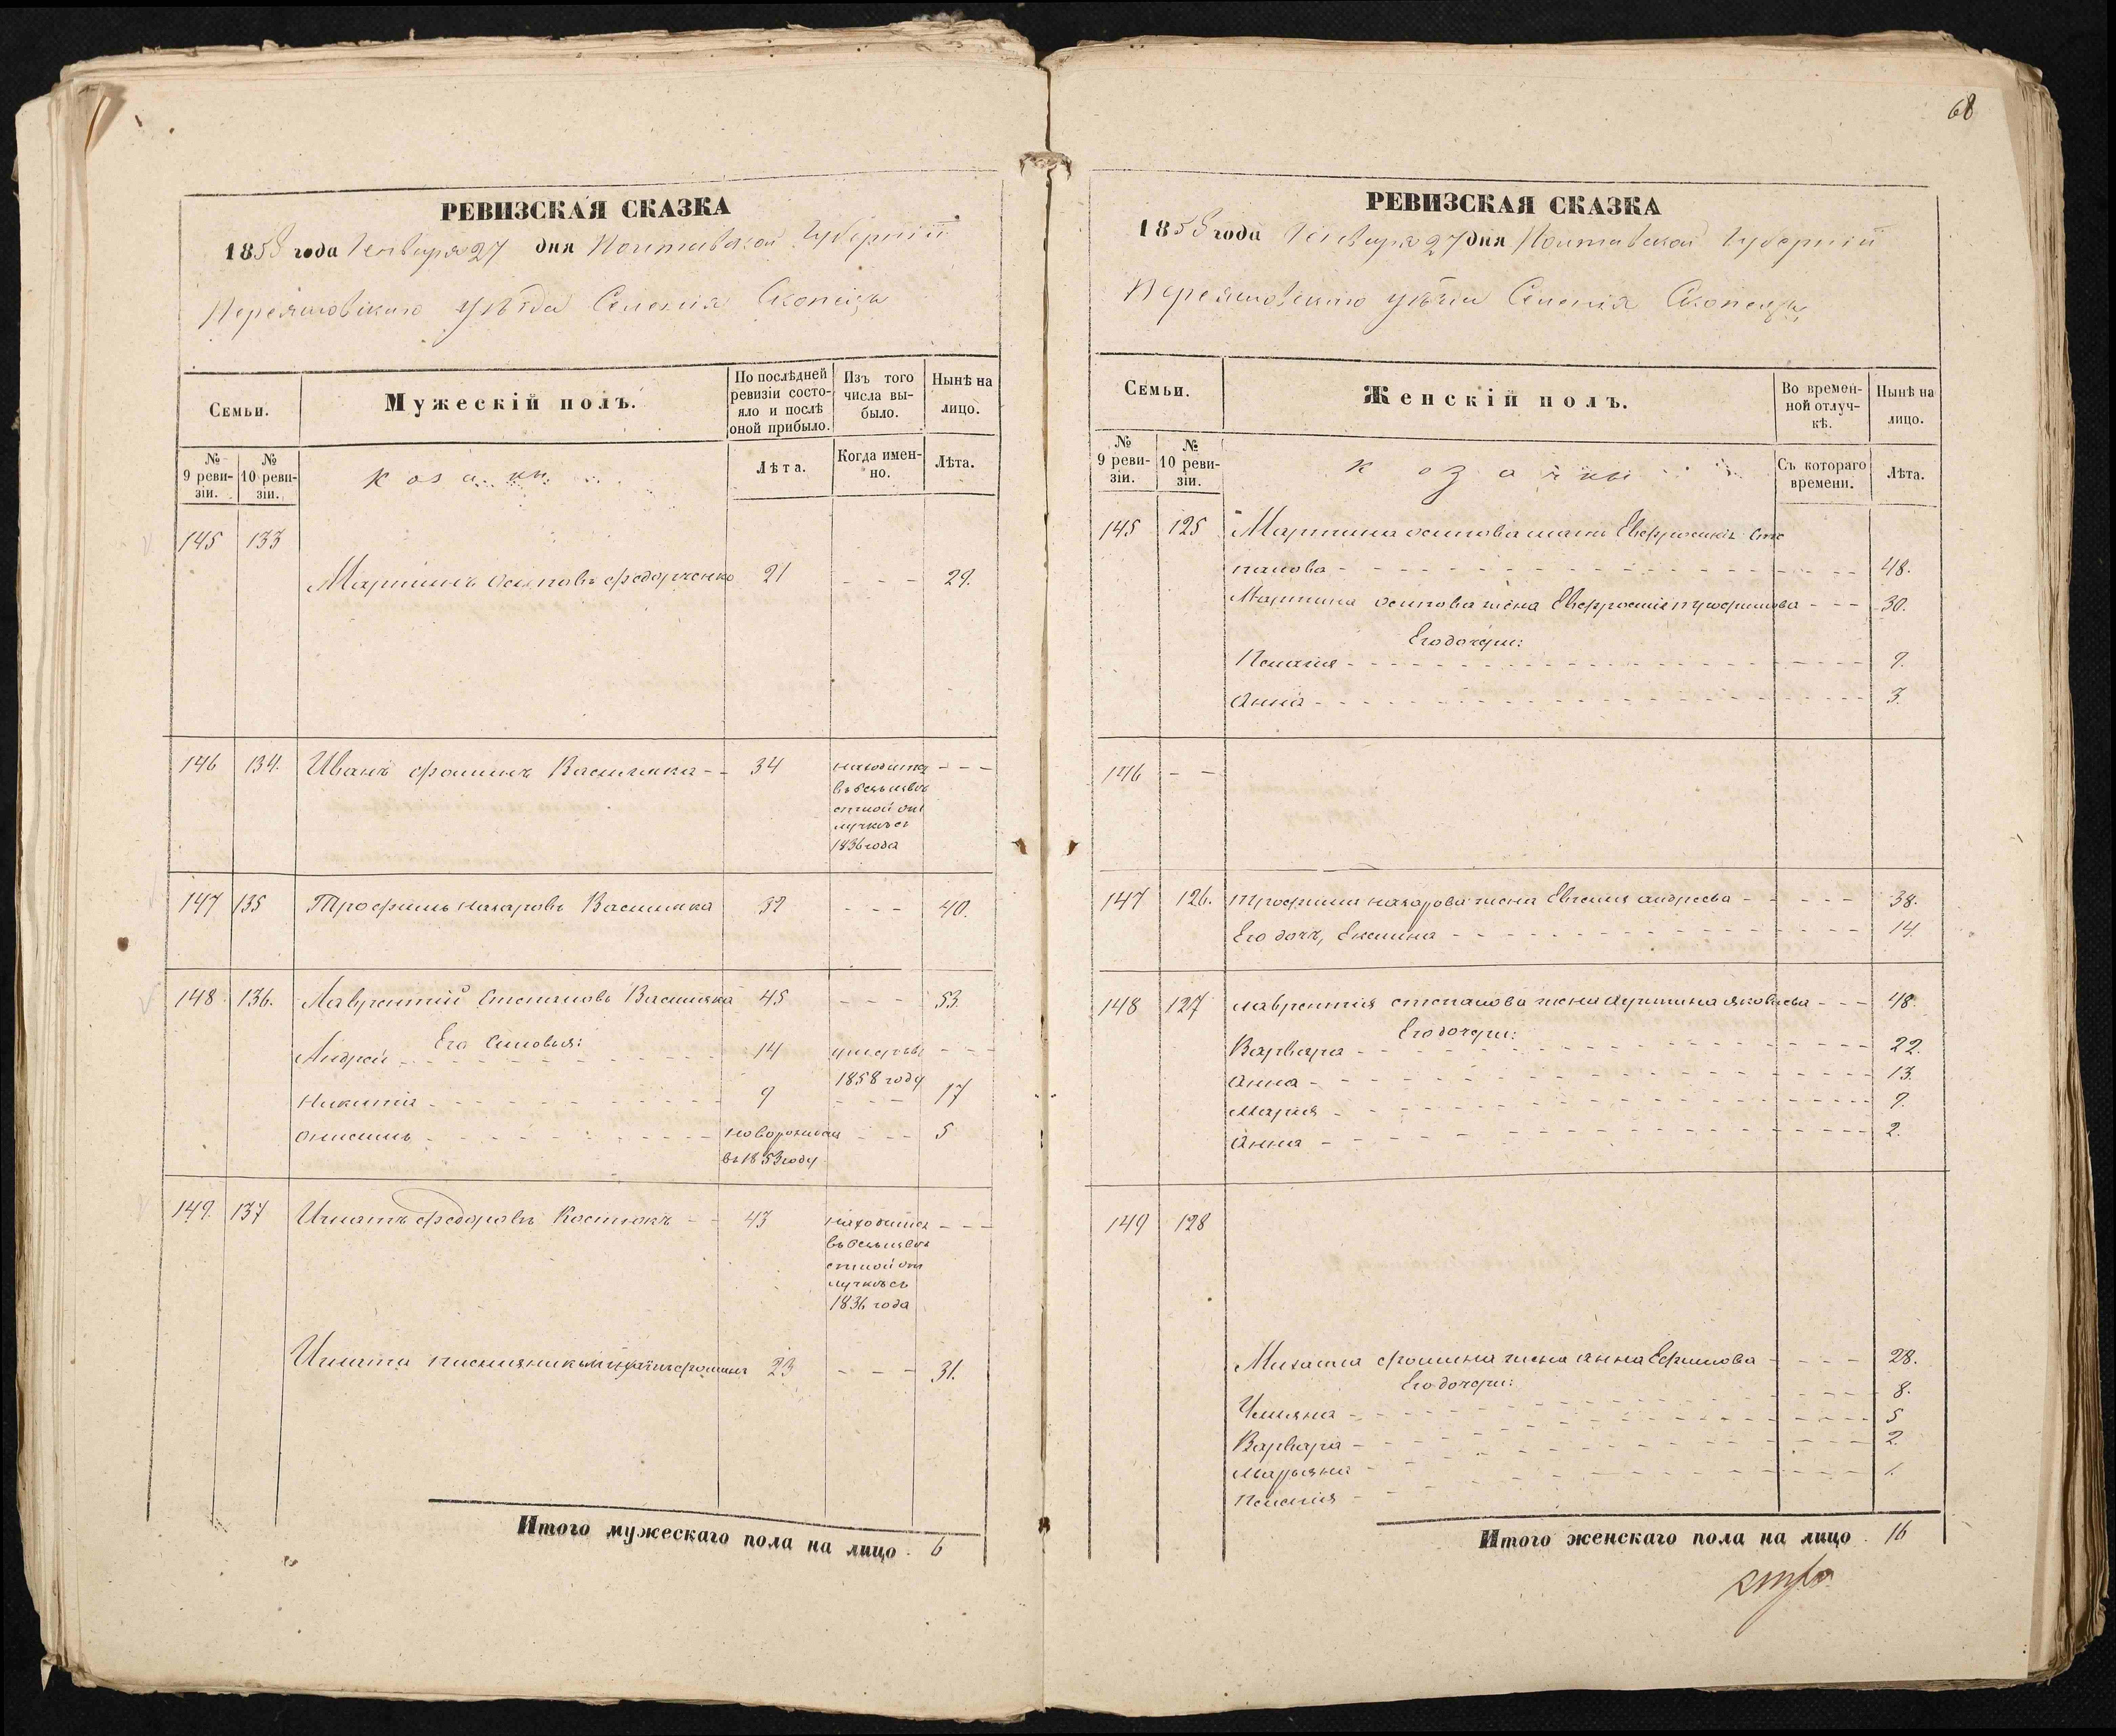 68
РЕВИЗСКАЯ СКАЗКА
1858 года Генваря 27 дня Полтавской Губерніи
Переяславскаго уѣзда Селенія Скопецъ
Семьи.
Мужескій полъ.
По послѣдней ревизіи состояло и послѣ оной прибыло.
Изъ того числа выбыло.
Нынѣ на лицо.
№ 9 ревизіи.
№ 10 ревизіи.
Козаки
Лѣта.
Когда именно.
Лѣта.
145 133
Мартинъ Осиповъ Федорченко 21 - - - 29.
146 134. Иванъ Фоминъ Василяка - - 34 находится - - -
въ безъизвѣ
стной от
лучкѣ съ
1836 года
147 135 Трофимъ Назаровъ Василяка 32 - - - 40.
148 136. Лаврентій Степановъ Василяка 45 - - - 53.
Его Сыновья:
Андрей - - - 14 умеръ въ - - -
1858 году
Никита - - - 9 - - - 17
Онисимъ - - - новорожден - - - 5
въ 1853 году
149. 137 Игнатъ Федоровъ Костюкъ - - 43 находится - - -
въ безъизвѣ
стной от
лучкѣ съ
1836 года
Игната племянникъ Фоминъ 23 - - - 31.
Итого мужескаго пола на лицо. 6
РЕВИЗСКАЯ СКАЗКА
1858 года Генваря 27 дня Полтавской Губерніи
Переяславскаго уѣзда Селенія Скопецъ
Семьи.
Женскій полъ.
Во временной отлучкѣ.
Нынѣ на лицо.
№ 9 ревизіи.
№ 10 ревизіи.
Козачки
Съ котораго времени.
Лѣта.
145 125 Мартина Осипова мати Евфросинія Сте
панова - - - 48.
Мартина Осипова жена Евфросинія Трофимова - - - 30.
Его дочери:
Пелагія - - - 9.
Анна - - - 3.
146 - -
147 126. Трофима Назарова жена Евгенія Андреева - - - 38.
Его дочь, Екатерина - - - 14.
148 127 Лаврентія Степанова жена Яковлева - - - 48.
Его дочери:
Варвара - - - 22.
Анна - - - 13.
Марія - - - 9.
Анна - - - 2.
149 128
Михаила Фомина жена Анна Ефимова - - - 28.
Его дочери: 8.
Ульяна - - - 5
Варвара - - - 2.
Марьяна - - - 1.
Пелагія - - -
Итого женскаго пола на лицо. 16